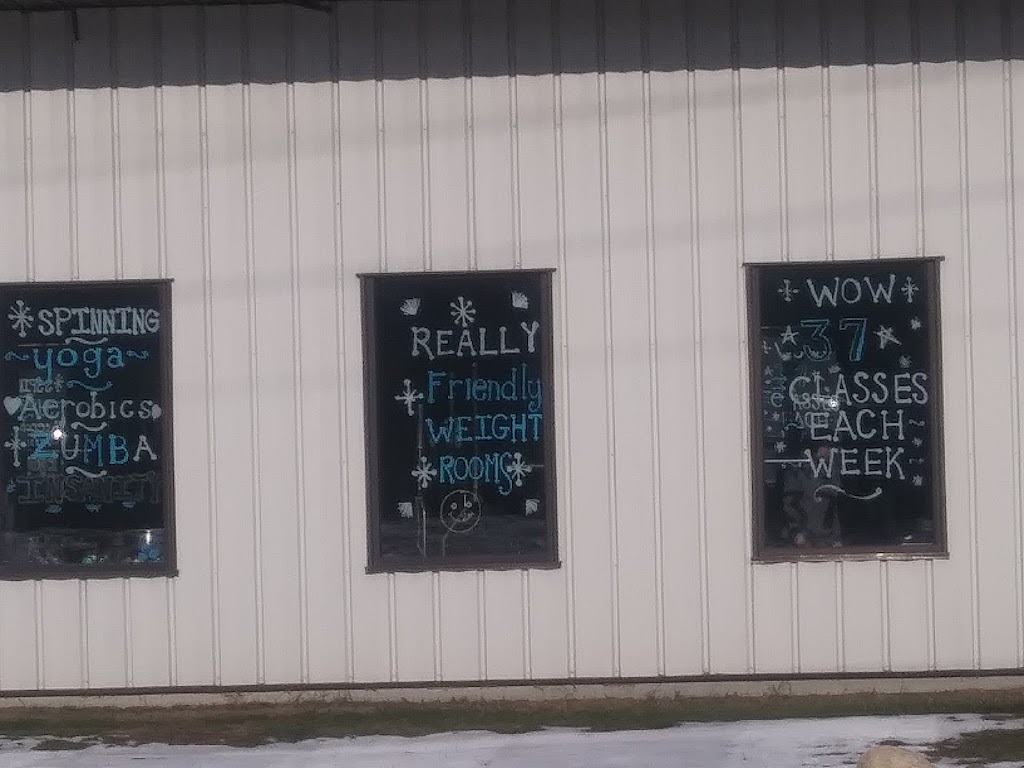 SPINNING
yoga
Aerobics
ZUMBA
INSANITY
REALLY
Friendly
WEIGHT
ROOMS
WOW
37
CLASSES
EACH
WEEK